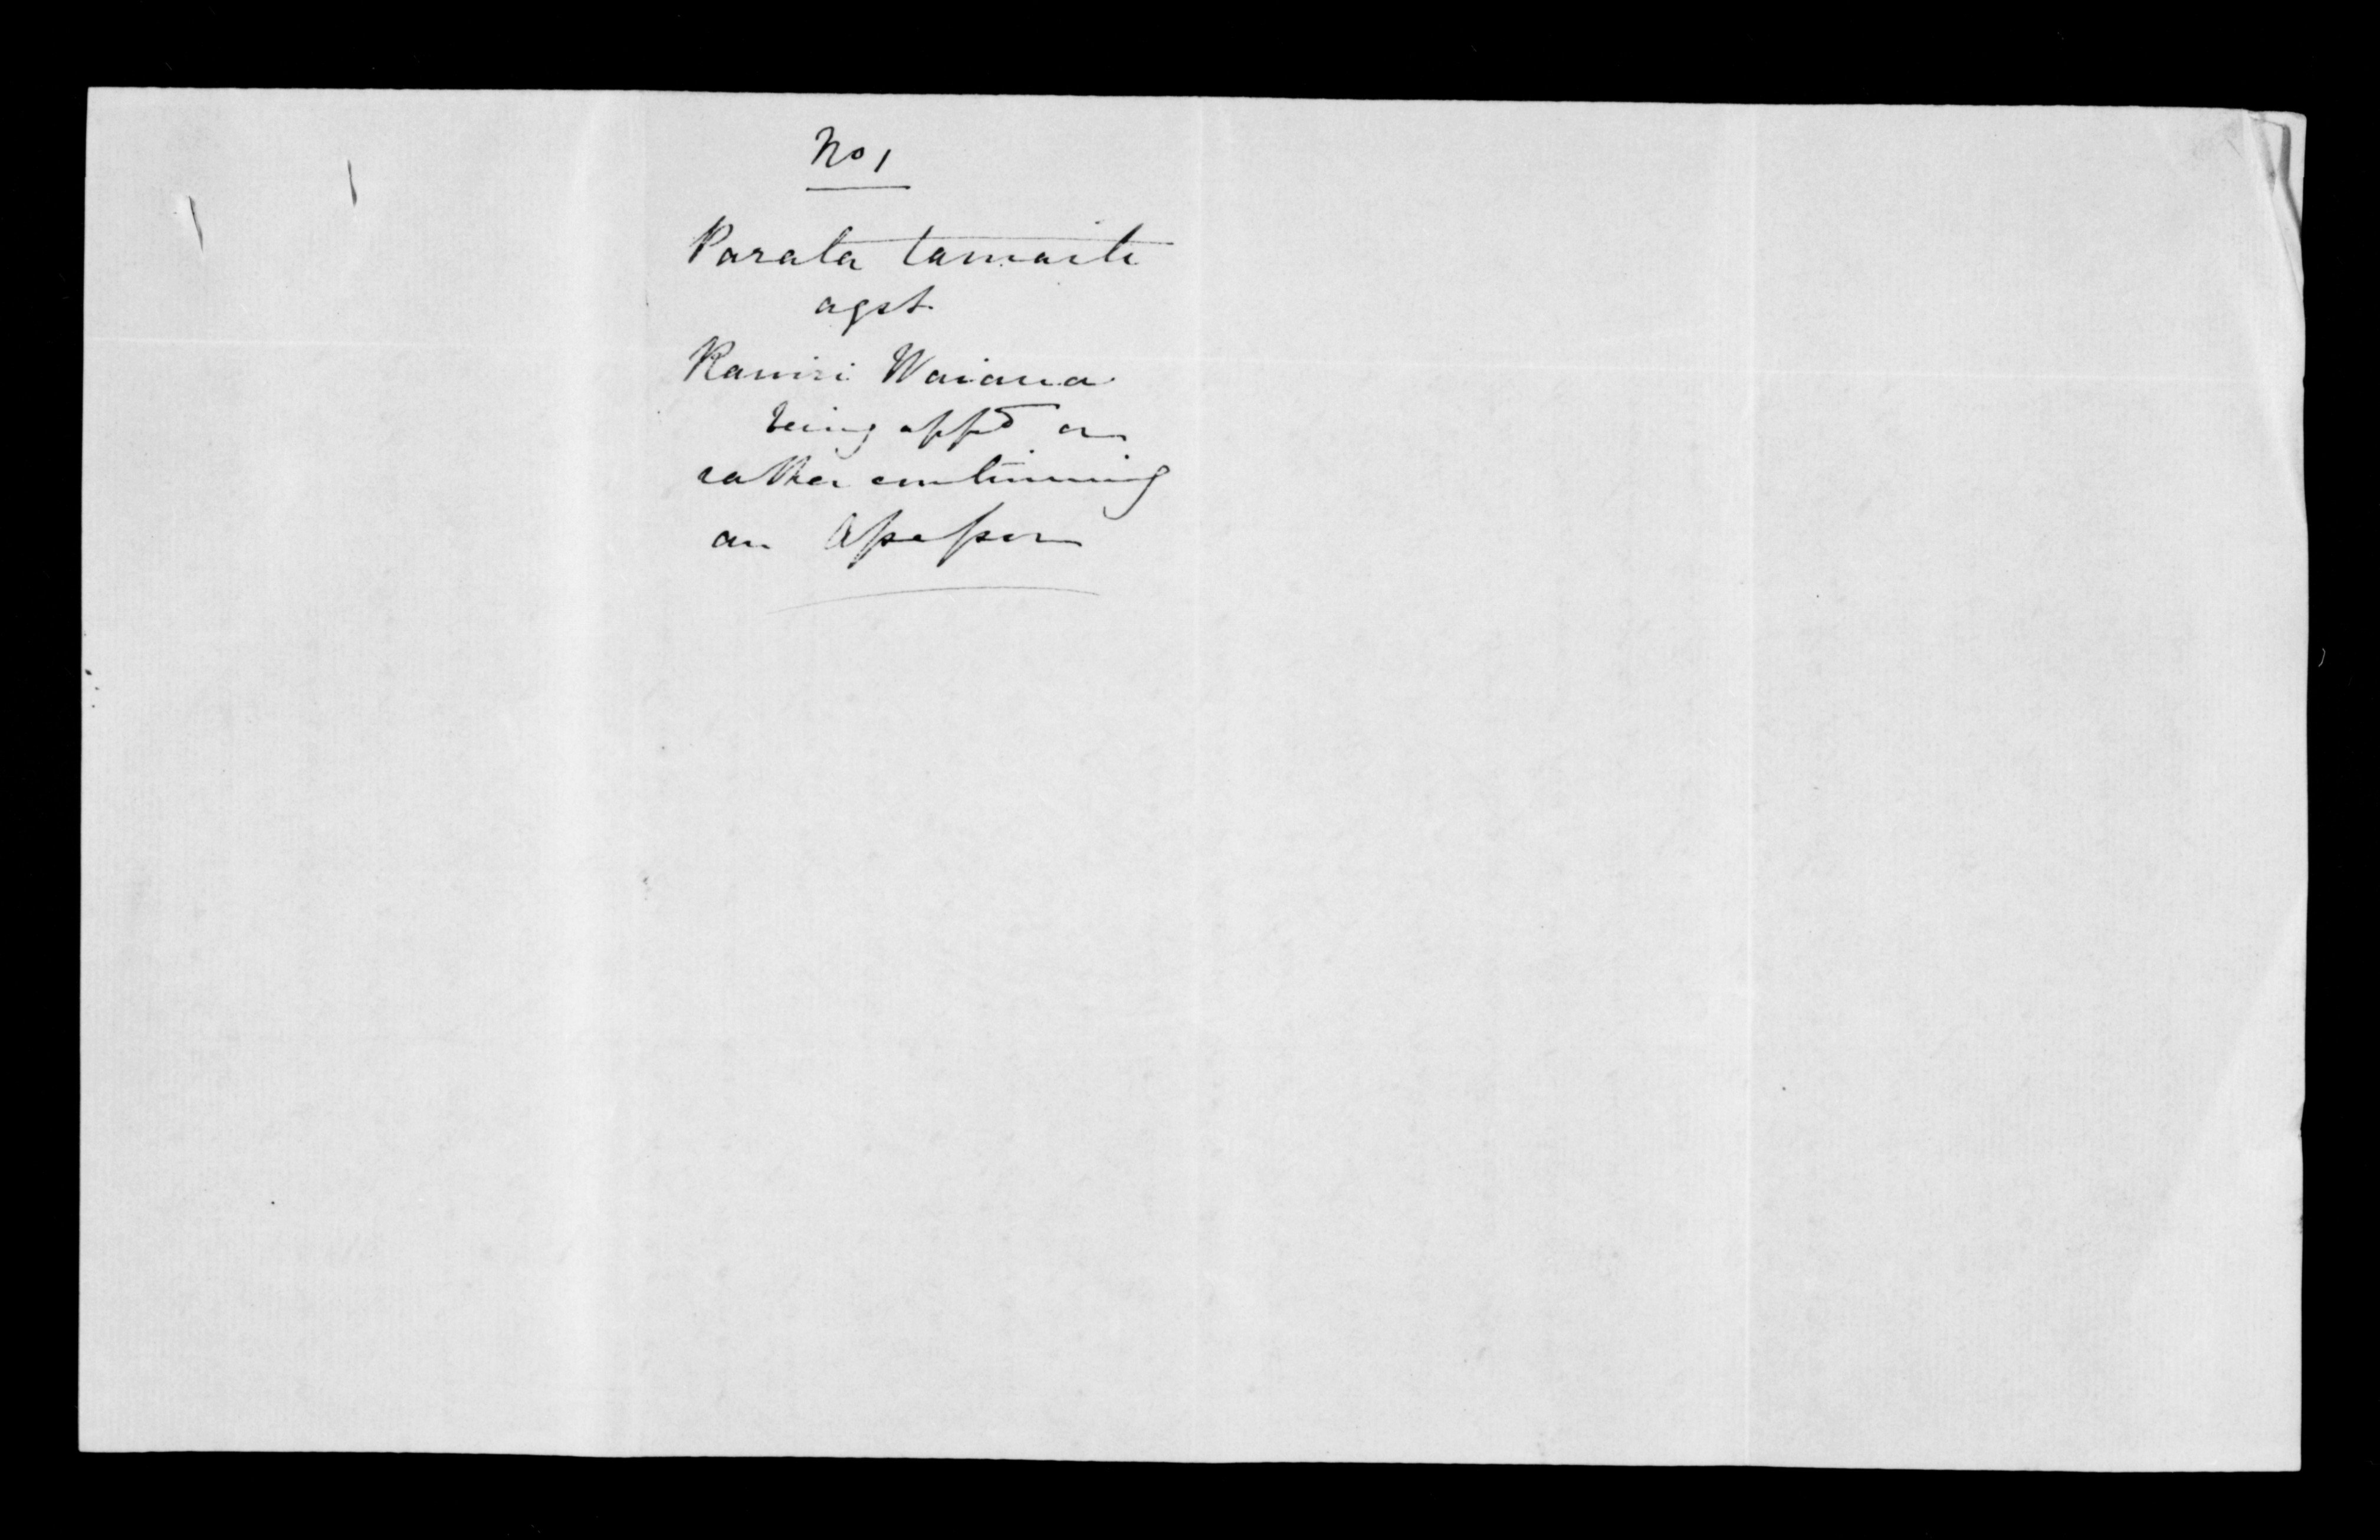 No 1
Parata tamaiti
agst.
Rawiri Waiaua
being appd or
rather continuing
an Assessor